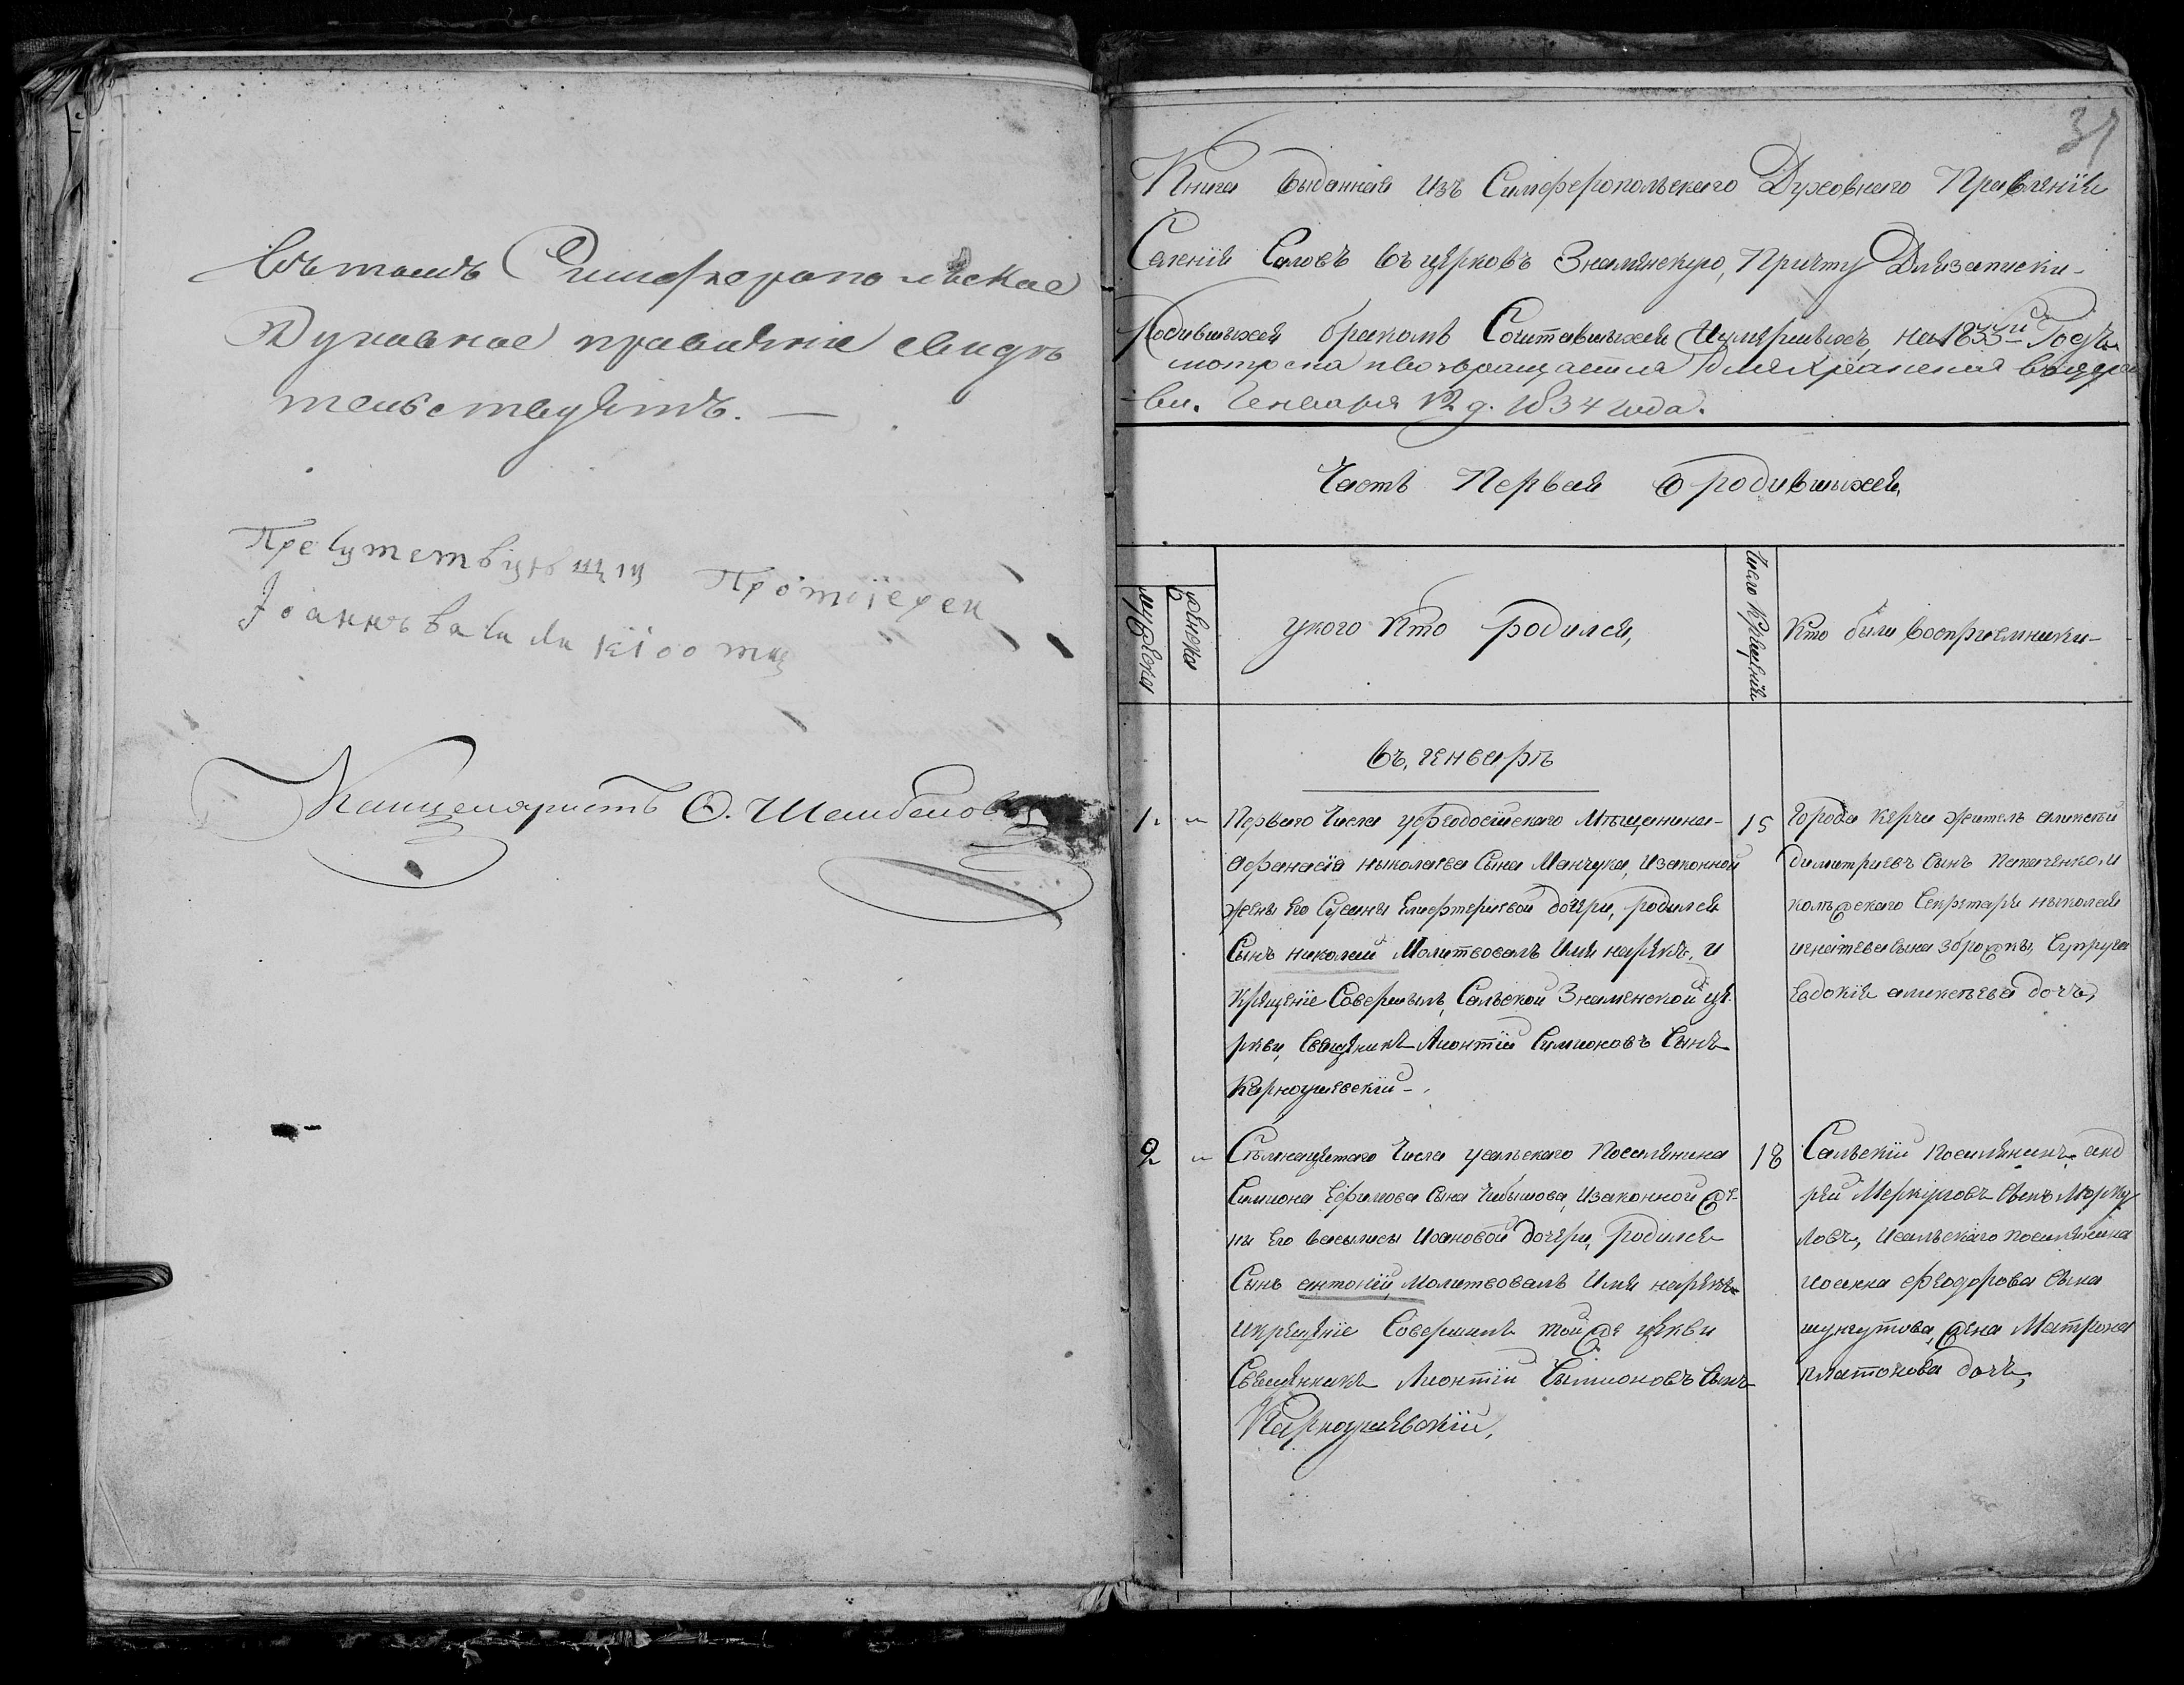 Въ томъ Симферопольское
Духовное правленіе свидѣ
тельствуетъ. —
Присутствующи Протоіереи
Іоаннъ
Канцеляристъ Ѳ.
31
Книга выданная Изъ Симферопольскаго Духовнаго Правленія
Саловъ въ церковъ Знаменскую, Причту Длязаписки-
Родившыхся бракомъ Сочитавшыхся Иумершыхъ, на 1833й Годъ
ивозвращается Дляхраненія вцерк
ви. Генваря 12 д. 1834 года.
Часть Первая О родившыхся,
мужеска
женска
укого Кто родился,
Коего Крещеніе
Кто были восприемники-
въ, генварѣ
1. " Перваго Числа уфеодосійскаго Мѣщанина-
афанасія николаева Сына Манчука, Изаконной
жены Его Сусаны Елефтериевой дочери, родился
Сынъ николай Молитвовалъ Имя нарекъ, и
Крещеніе Совершылъ, Сальской Знаменской це-
ркви, Священикъ Лионтій Симионовъ Сынъ
Карноушевскій-.
15
Города Керчи житель аликсѣй
димитриевъ Сынъ
колежскаго Секретаря николая
игнатева Сына Супруга
Евдокія аликсѣева дочъ,
2 " Сѣмнацетаго Числа усальскаго Поселянина
Симиона Ефимова Сына Чибышова, Изаконной же-
ны Его васылисы Иоановой дочери, родился
Сынъ антоній, Молитвовалъ Имя нарекъ
икрещеніе Совершилъ той же церкви
Священникъ Лионтій Сымионовъ Сынъ
Карноушевскій,
18
Сальскій Поселянинъ анд
рей Меркуловъ Сынъ Мерку
ловъ, Исальскаго поселянина
иоанна феодорова Сына
шунгутова, жена Матрона
платонова дочъ,